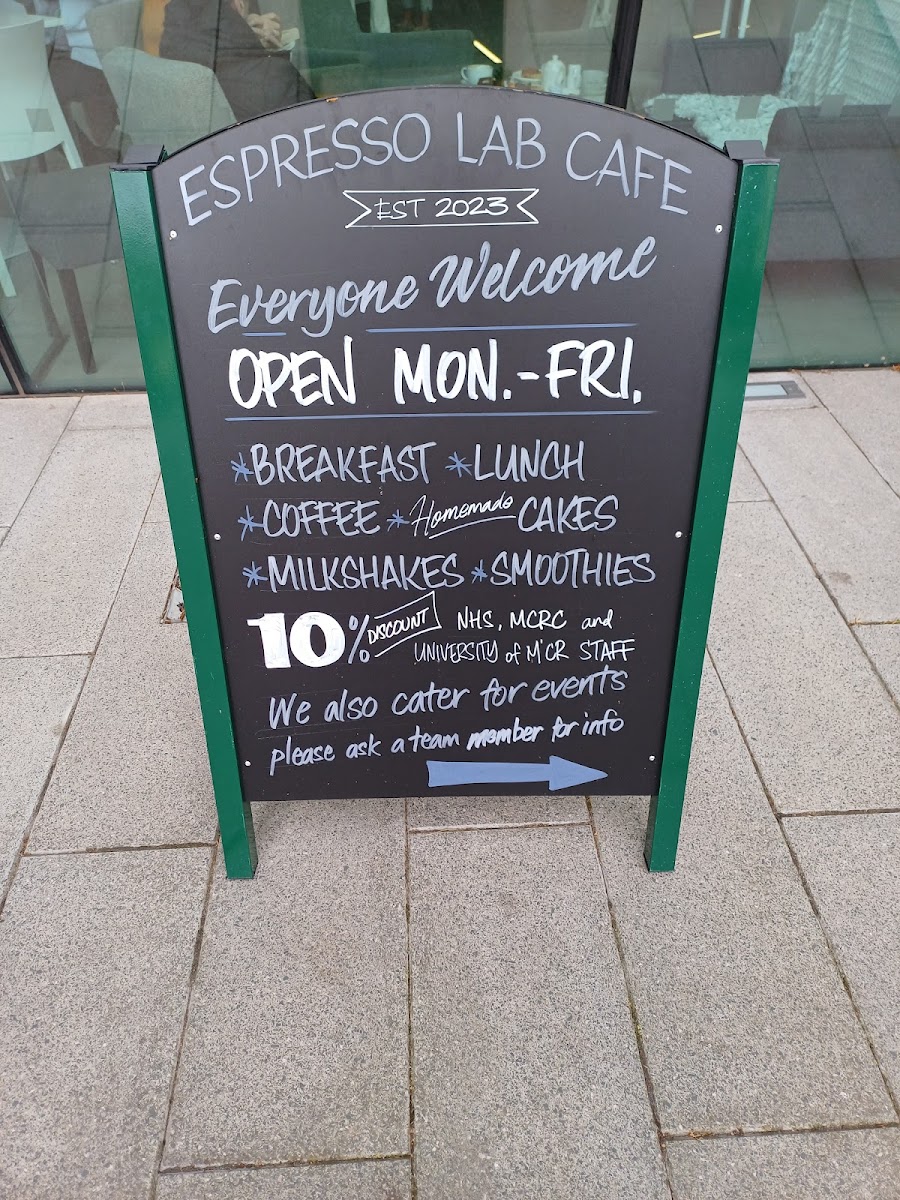 ESPRESSO LAB CAFE
EST 2023
Everyone Welcome
OPEN MON.-FRI.
*BREAKFAST *LUNCH
*COFFEE *Homemade CAKES
*MILKSHAKES *SMOOTHIES
10% DISCOUNT NHS, MCRC and
UNIVERSITY of M'CR STAFF
We also cater for events
please ask a team member for info